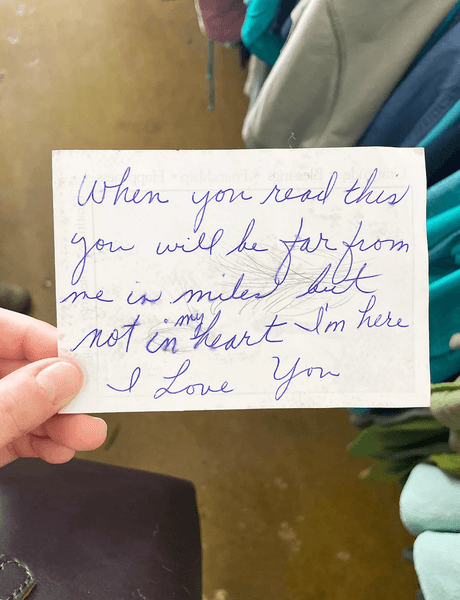 When you read this
you will be far from
me in miles but
not in my heart I'm here
I Love You